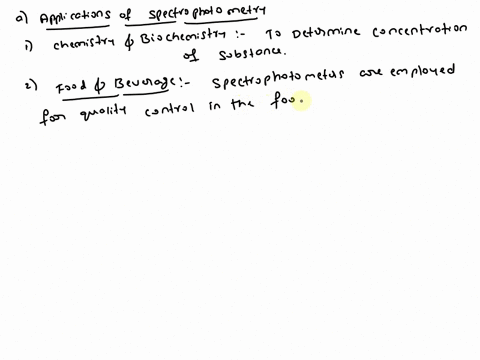 a) Applications of spectrophotometry
1) Chemistry & Biochemistry :- To Determine concentration
of substance.
2) Food & Beverage :- Spectrophotometers are employed
for quality control in the foo